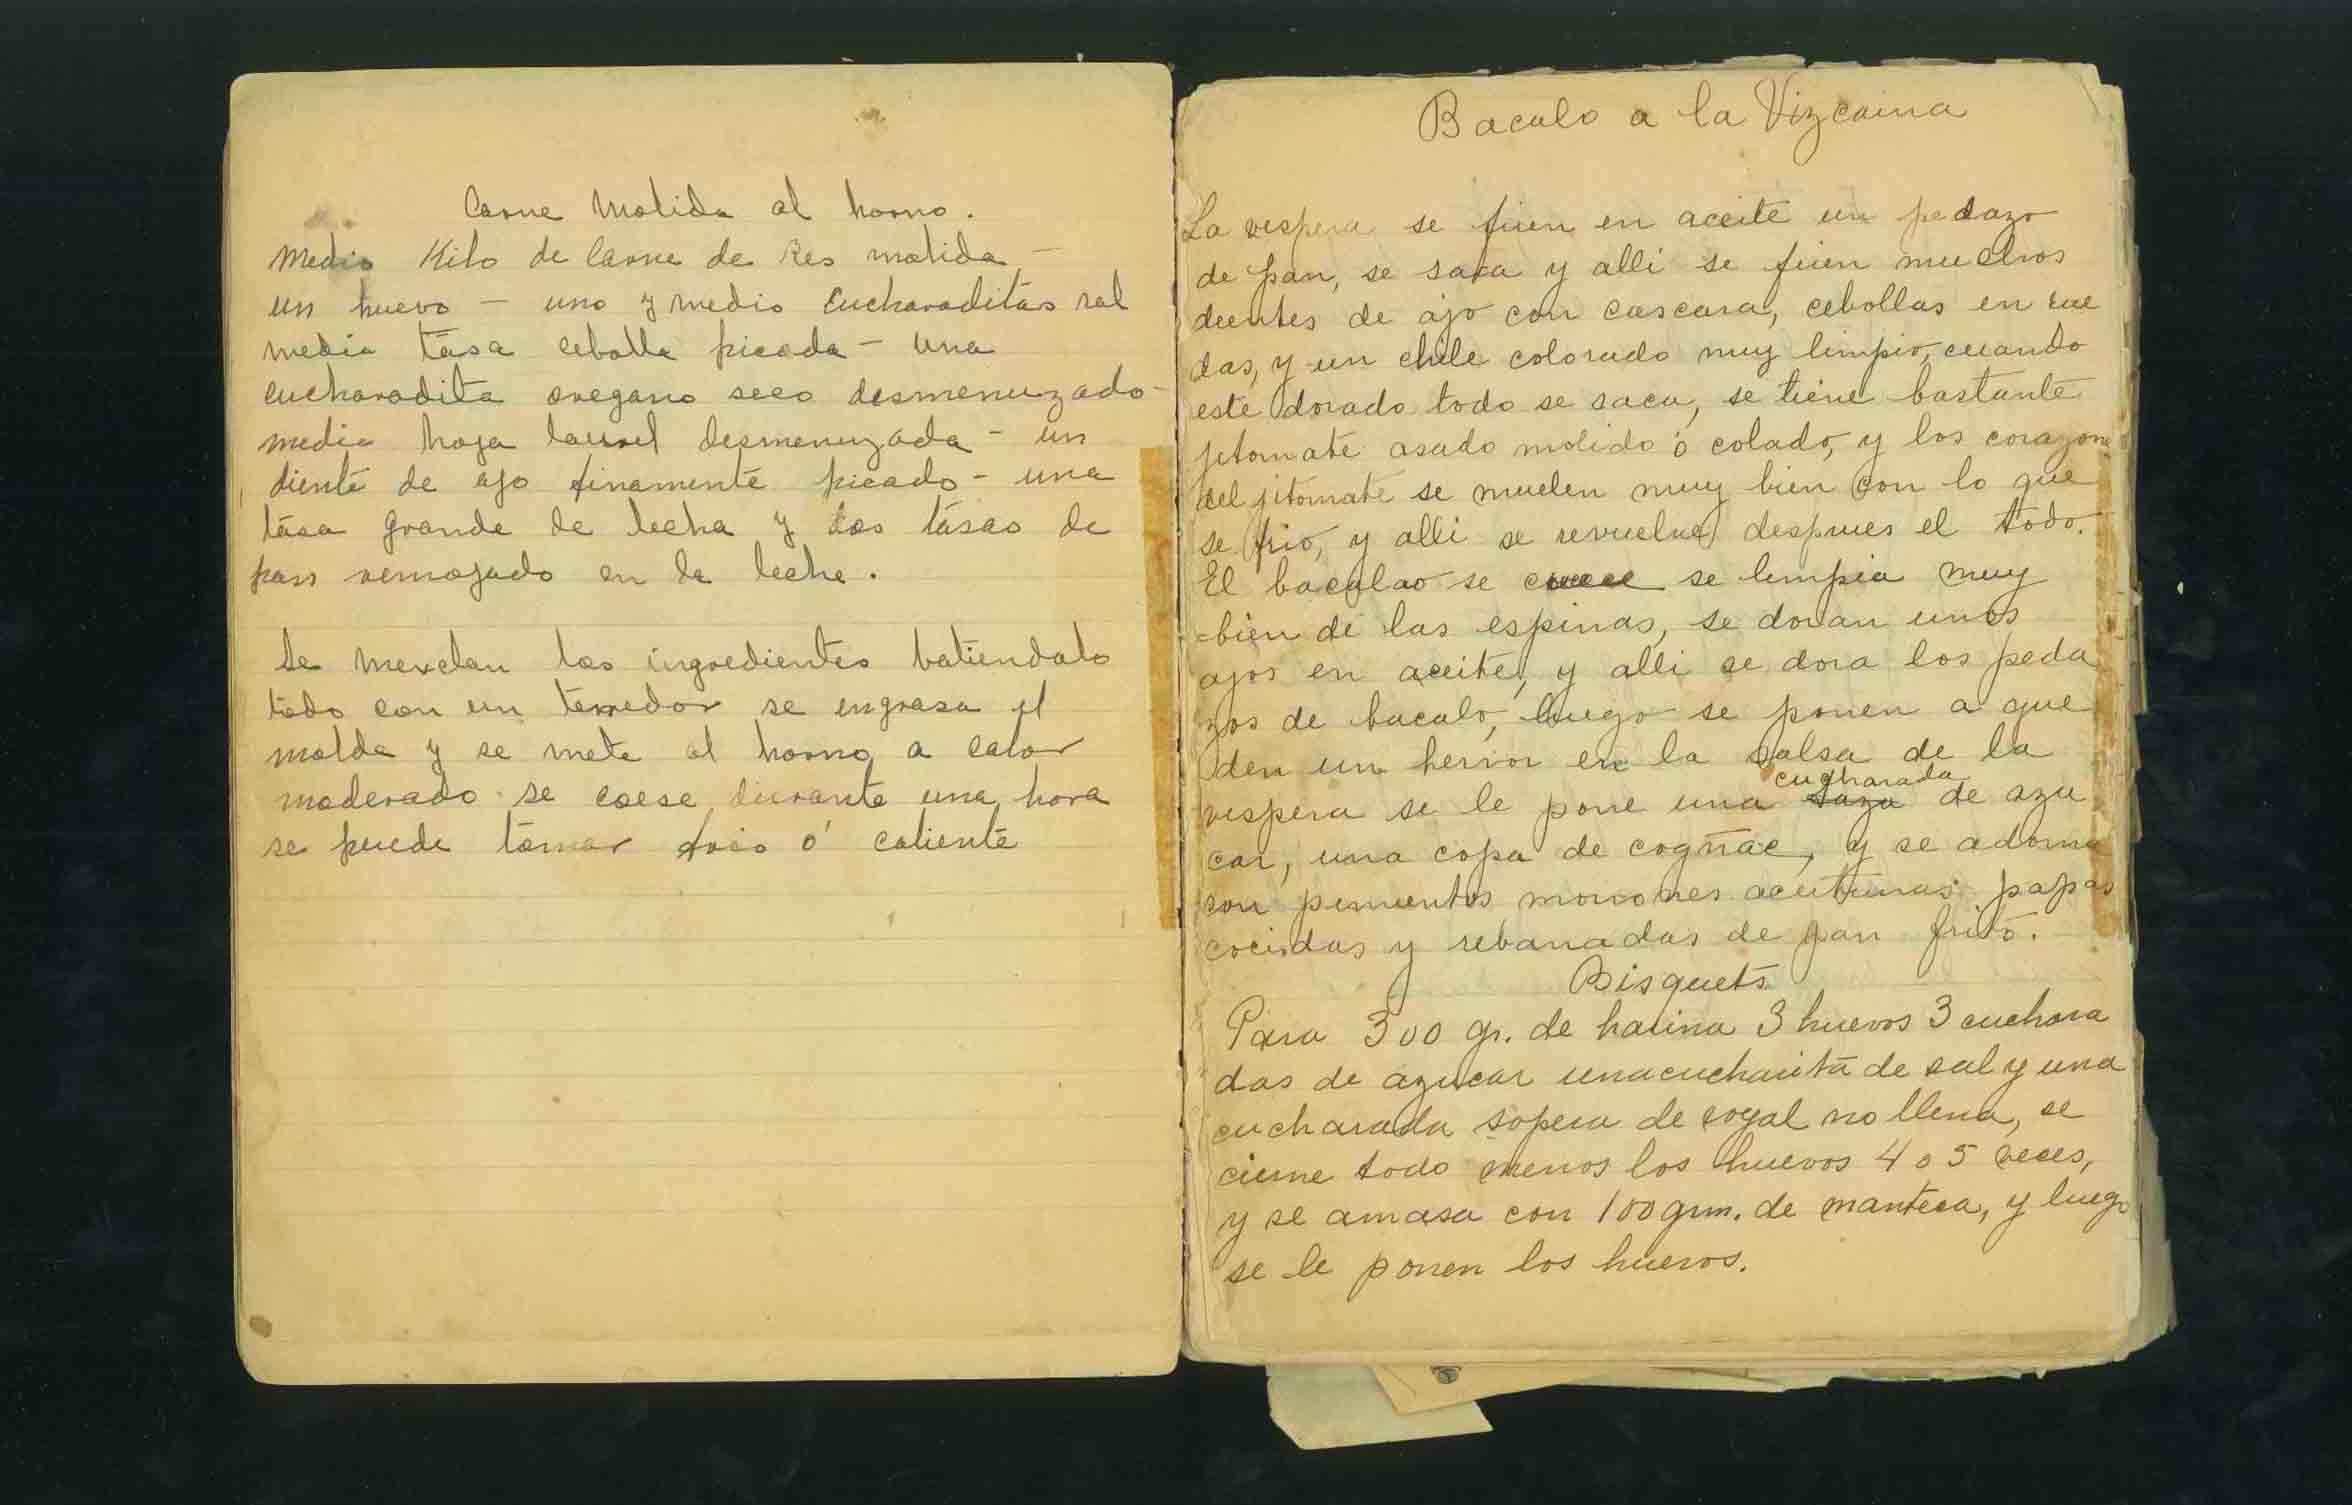 Carne Molida al horno.
Medio Kilo de Carne de Res molida -
un huevo - uno y medio cucharaditas sal
media tasa cebolla picada - una
cucharadita oregano seco desmenuzado -
media hoja laurel desmenuzada - un
diente de ajo finamente picado - una
tasa grande de leche y dos tasas de
pan remojado en la leche.
Se mexclan los ingredientes batiendolo
todo con un tenedor se engrasa el
molde y se mete al horno a calor
moderado se coese durante una hora
se puede tomar frio ó caliente
Bacalo a la Vizcaina
La vespera se frien en aceite un pedazo
de pan, se saca y alli se frien muchos
dientes de ajo con cascara, cebollas en rue
das, y un chile colorado muy limpio, cuando
este dorado todo se saca, se tiene bastante
jitomate asado molido ó colado, y los corazone
del jitomate se muelen muy bien con lo que
se frio, y alli se revuelve despues el todo.
El bacalao se cuece se limpia muy
bien de las espinas, se doran unos
ajos en aceite, y alli se dora los peda
zos de bacalo, luego se ponen a que
den un hervor en la salsa de la
vespera se le pone una taza cucharada de azu
car, una copa de cogñac, y se adorna
con pimientos morrones aceitunas papas
cocidas y rebanadas de pan frito.
Bisquets
Para 300 gr. de harina 3 huevos 3 cuchara
das de azucar una cucharita de sal y una
cucharada sopera de royal no llena, se
cierne todo menos los huevos 4 o 5 veces,
y se amasa con 100 grm. de manteca, y luego
se le ponen los huevos.